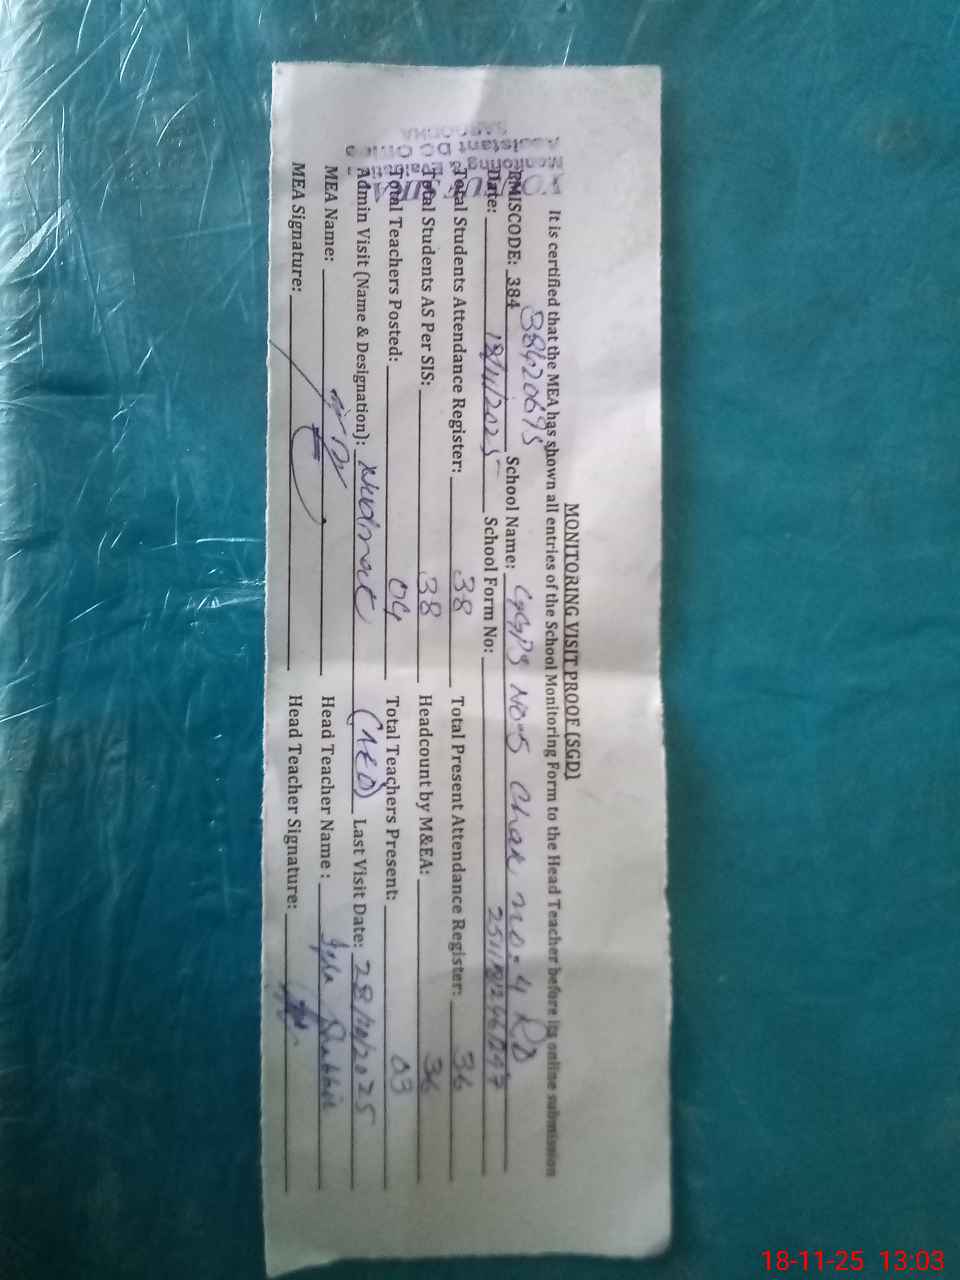 MONITORING VISIT PROOF (SGD)
It is certified that the MEA has shown all entries of the School Monitoring Form to the Head Teacher before its online submission
EMISCODE: 384 38420695 School Name: GGPS NO=5 Chak no=4 RD
Date: 18/11/2025 School Form No:
Total Students Attendance Register: 38 Total Present Attendance Register: 36
Total Students AS Per SIS: 38 Headcount by M&EA: 36
Total Teachers Posted: 04 Total Teachers Present: 03
Admin Visit (Name & Designation): Nudrat (AEO) Last Visit Date: 28/10/2025
MEA Name: Head Teacher Name : Iqla Shabbir
MEA Signature: Head Teacher Signature:
Monitoring &
Assistant DC Office
SARGODHA
18-11-25 13:03